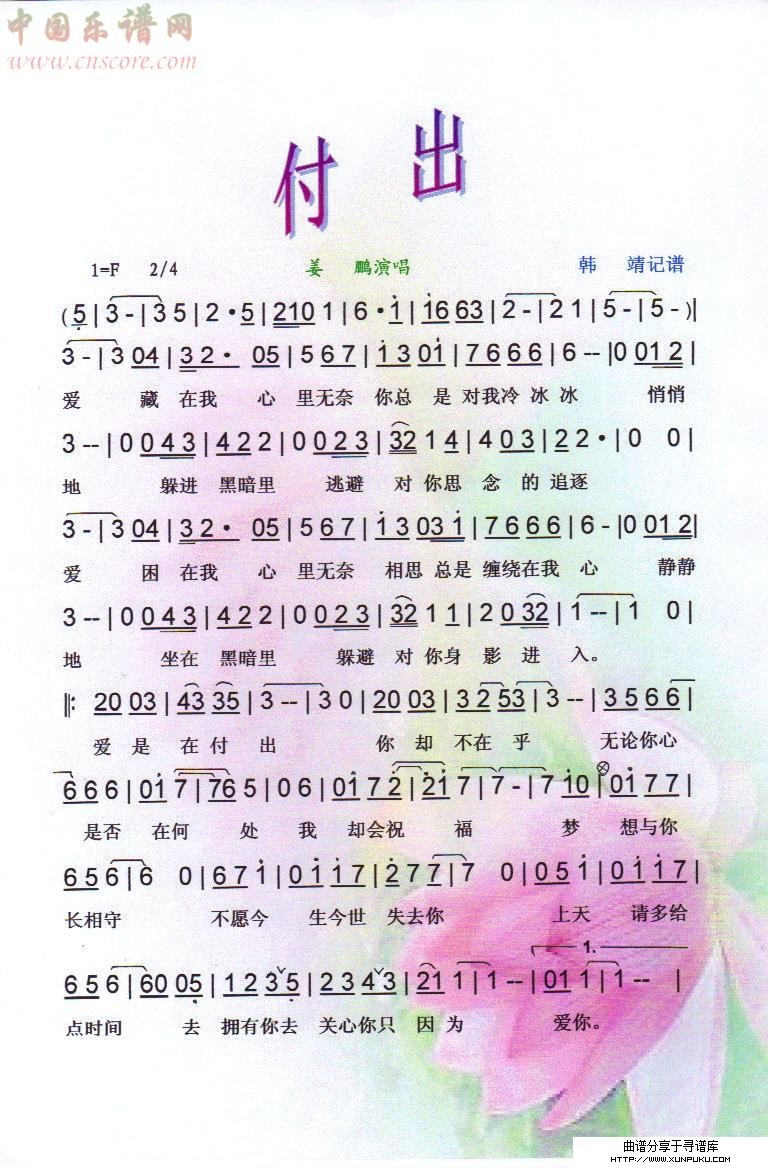 中国乐谱网
www.cnscore.com
付 出
1=F 2/4 姜 鹏演唱 韩 靖记谱
(5 | 3 - | 3 5 | 2 · 5 | 210 1 | 6 · i | i6 63 | 2 - | 2 1 | 5 - | 5 - )|
3 - | 3 04 | 3 2 · 05 | 5 6 7 | i 3 0i | 7 6 6 6 | 6 -- |0 01 2 |
爱 藏 在我 心 里无奈 你总 是 对我冷 冰 冰 悄悄
3 -- | 0 0 4 3 | 4 2 2 | 0 0 2 3 | 32 1 4 | 4 0 3 | 2 2 · | 0 0 |
地 躲进 黑暗里 逃避 对 你思 念 的 追逐
3 - | 3 04 | 3 2 · 05 | 5 6 7 | i 3 03 i | 7 6 6 6 | 6 - |0 01 2|
爱 困 在我 心 里无奈 相思 总是 缠绕在我 心 静静
3 -- | 0 0 4 3 | 4 2 2 | 0 0 2 3 | 32 1 1 | 2 0 32 | 1 -- | 1 0 |
地 坐在 黑暗里 躲避 对 你身 影 进 入。
‖: 20 03 | 43 35 | 3 -- | 3 0 | 20 03 | 3 2 53 | 3 -- | 3 5 6 6 |
爱 是 在 付 出 你 却 不在 乎 无论你心
6 6 6 | 0i 7 | 76 5 | 0 6 | 0i 7 2 | 2i 7 | 7 - | 7 i0 | 0i 7 7 |
是否 在何 处 我 却会祝 福 梦 想与你
6 5 6 | 6 0 | 6 7 i | 0 i i 7 | 2 7 7 | 7 0 | 0 5 i | 0 i i 7 |
长相守 不愿今 生今世 失去你 上天 请多给
1.
6 5 6 | 60 05 | 1 2 3ˇ5 | 2 3 4ˇ3 | 21 1 | 1 -- | 01 1 | 1 -- |
点时间 去 拥有你去 关心你只 因 为 爱你。
曲谱分享于寻谱库
HTTP://WWW.XUNPUKU.COM